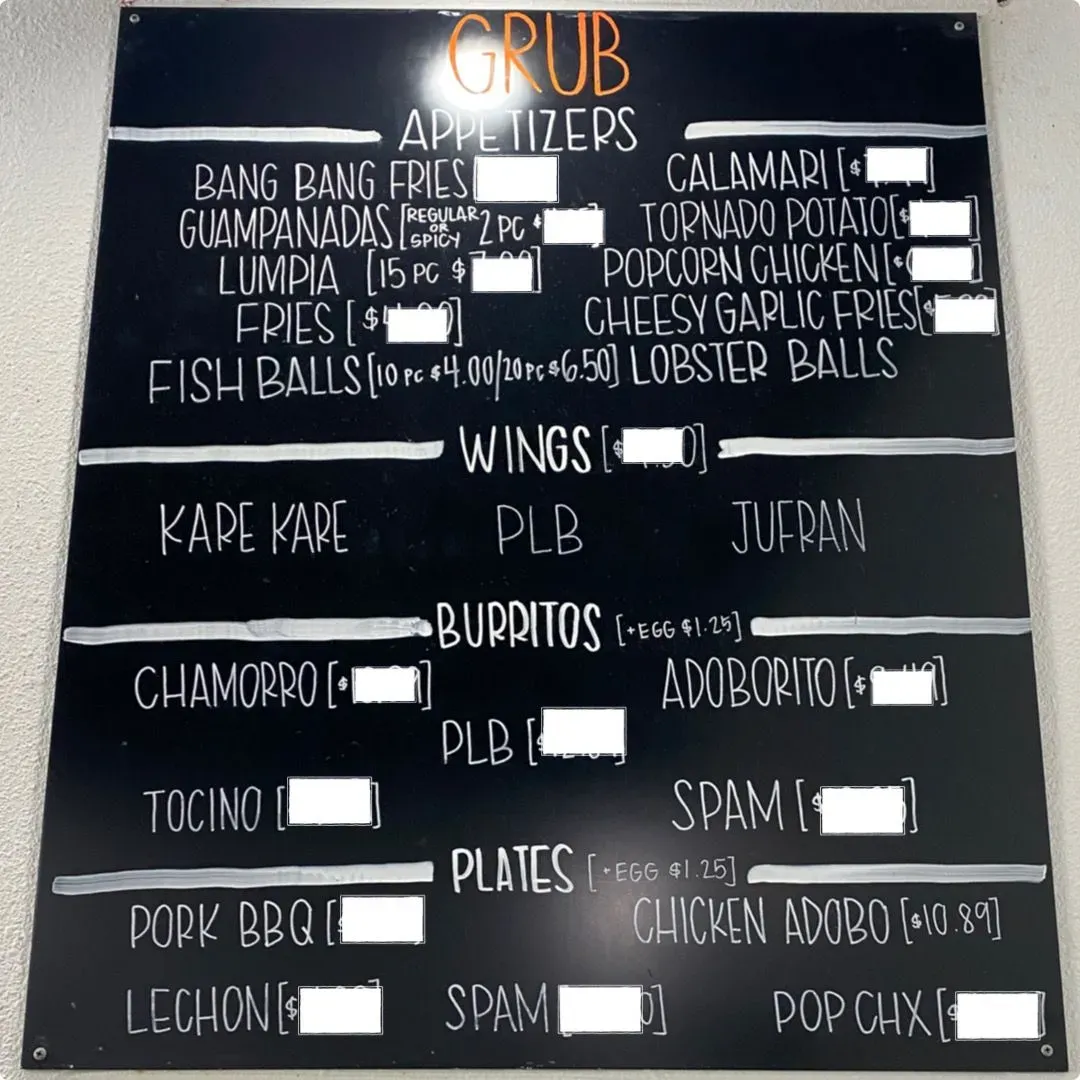 GRUB
APPETIZERS
BANG BANG FRIES CALAMARI [$ ]
GUAMPANADAS [REGULAR OR SPICY 2 PC $ ] TORNADO POTATO [$ ]
LUMPIA [15 PC $ ] POPCORN CHICKEN [$ ]
FRIES [$ ] CHEESY GARLIC FRIES [$ ]
FISH BALLS [10 PC $4.00/20 PC $6.50] LOBSTER BALLS
WINGS [$ ]
KARE KARE PLB JUFRAN
BURRITOS [+EGG $1.25]
CHAMORRO [$ ] ADOBORITO [$ ]
PLB [$ ]
TOCINO [ ] SPAM [$ ]
PLATES [+EGG $1.25]
PORK BBQ [$ CHICKEN ADOBO [$10.89]
LECHON [$ SPAM ] POP CHX [$ ]